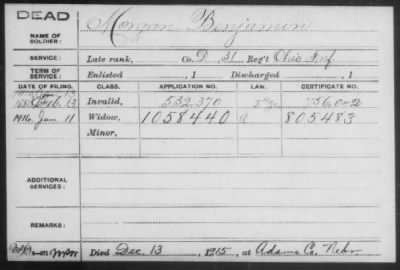 DEAD
Morgan, Benjamin
NAME OF SOLDIER:
SERVICE: Late rank, Co. D, 31 Reg't Ohio Inf.
TERM OF SERVICE: Enlisted , 1 Discharged , 1
DATE OF FILING. CLASS. APPLICATION NO. LAW. CERTIFICATE NO.
Feb. 13 Invalid, 532,370
1916, Jan 11 Widow, 1058440 805483
Minor,
ADDITIONAL SERVICES:
REMARKS:
Died Dec. 13, 1915, at Adams Co. Nebr.